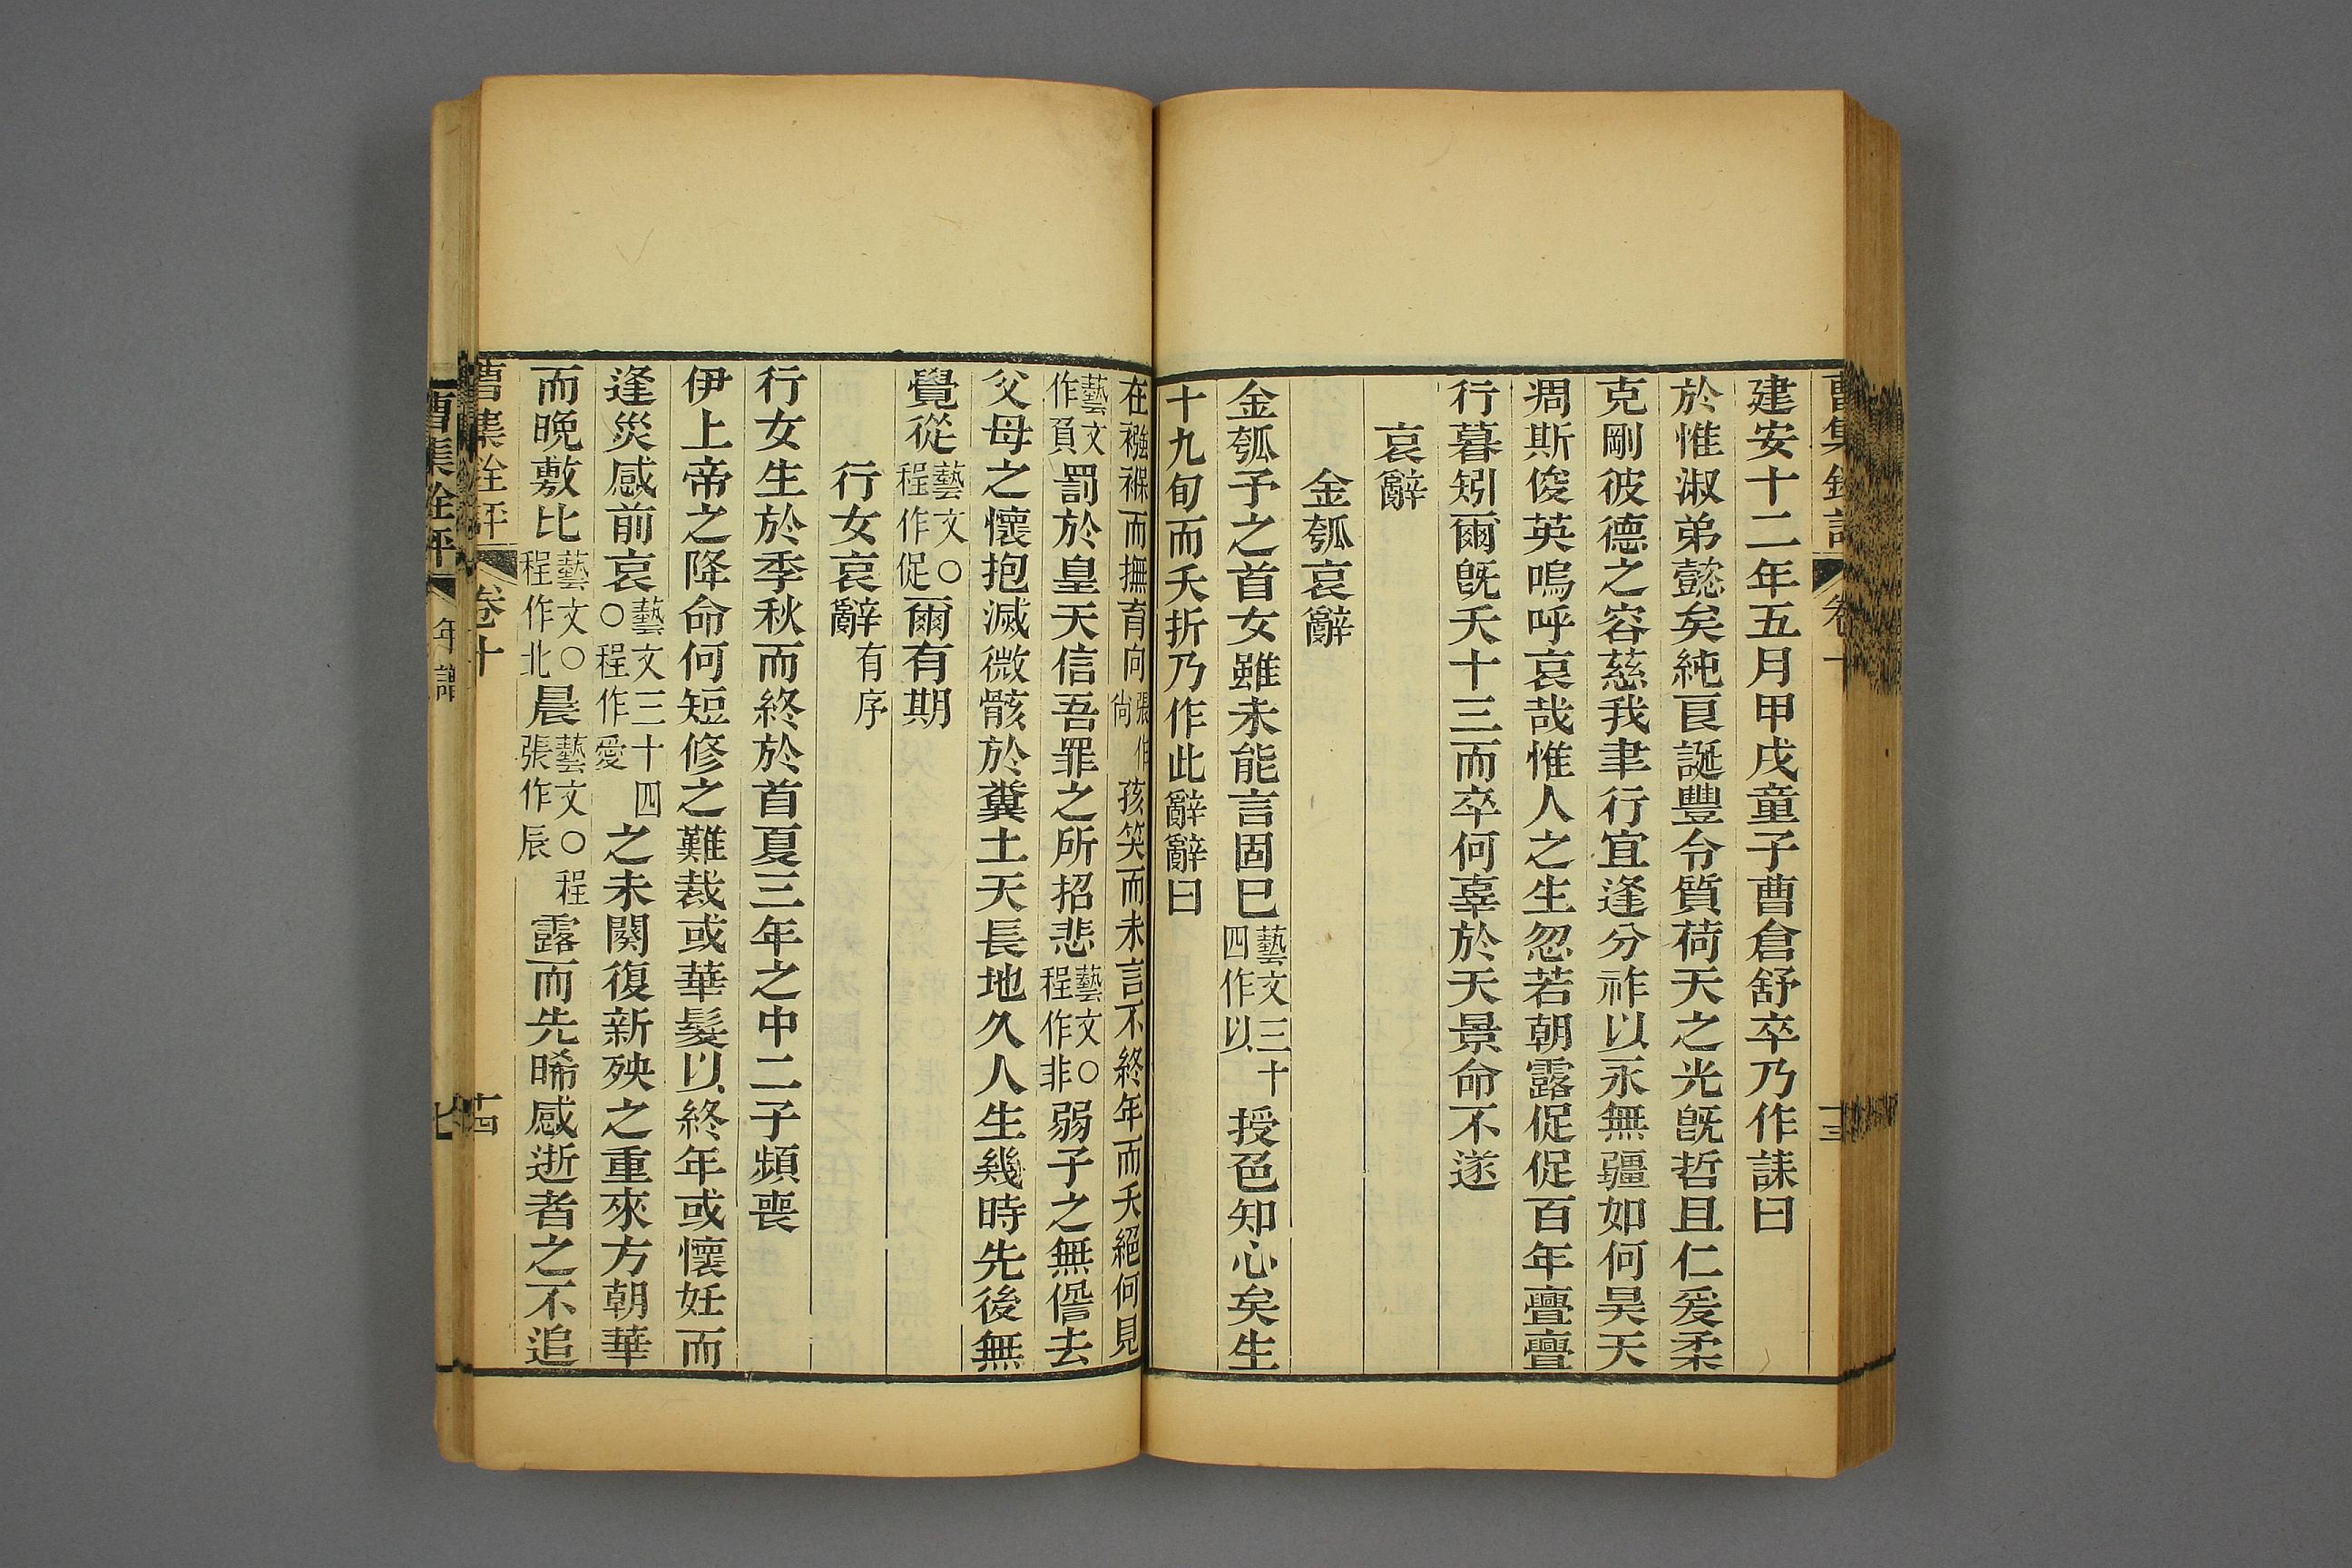 建安十二年五月甲戌童子曹倉舒卒乃作誄曰
於惟淑弟懿矣純良誕豐令質荷天之光旣哲且仁爰柔
克剛彼德之容慈我聿行宜逢分祚以永無疆如何昊天
凋斯俊英嗚呼哀哉惟人之生忽若朝露促促百年亹亹
行暮矧爾旣夭十三而卒何辜於天景命不遂
哀辭
金瓠哀辭
金瓠予之首女雖未能言固巳藝文三十四作以授色知心矣生
十九旬而夭折乃作此辭辭曰
在襁褓而撫育向張作尙孩笑而未言不終年而夭絕何見
藝文作負罰於皇天信吾罪之所招悲藝文○程作非弱子之無諐去
父母之懷抱滅微骸於糞土天長地久人生幾時先後無
覺從藝文○程作促爾有期
行女哀辭有序
行女生於季秋而終於首夏三年之中二子頻喪
伊上帝之降命何短修之難裁或華髮以終年或懷妊而
逢災感前哀藝文三十四○程作愛之未闋復新殃之重來方朝華
而晚敷比藝文○程作北晨藝文○程張作辰露而先晞感逝者之不追
曹集銓評 卷十 十四
曹集銓評 年譜